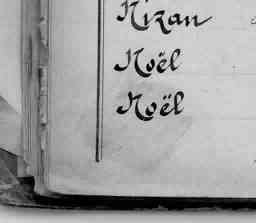 Nizan
Noël
Noël